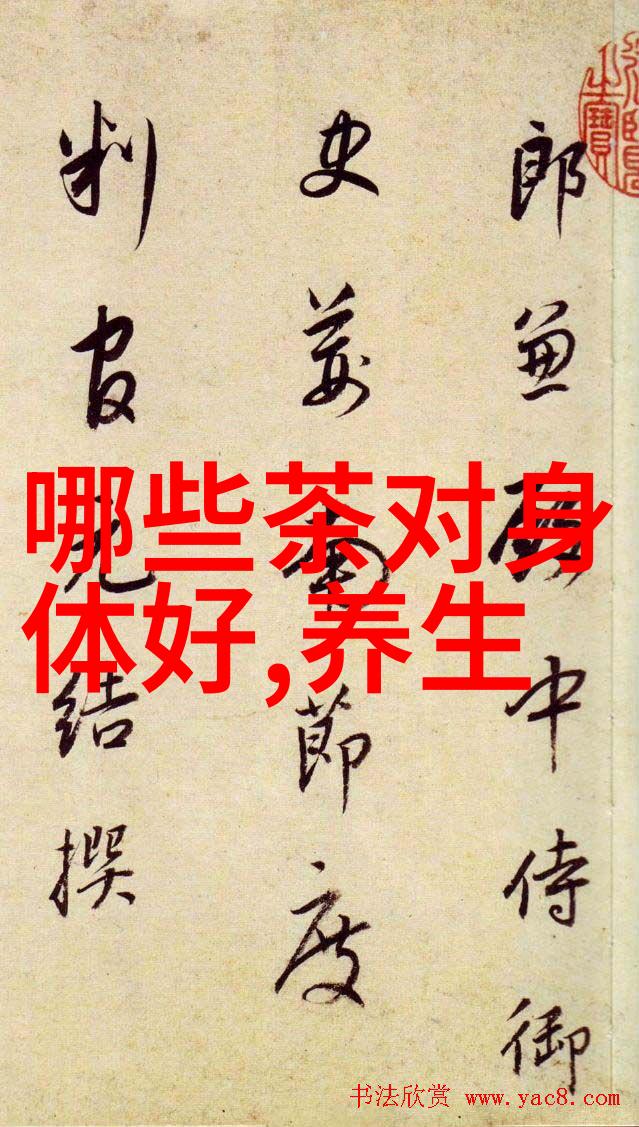 郎兼殿中侍御
史南節度
判官元結撰
哪些茶对身
体好,养生
书法欣赏 www.yac8.com